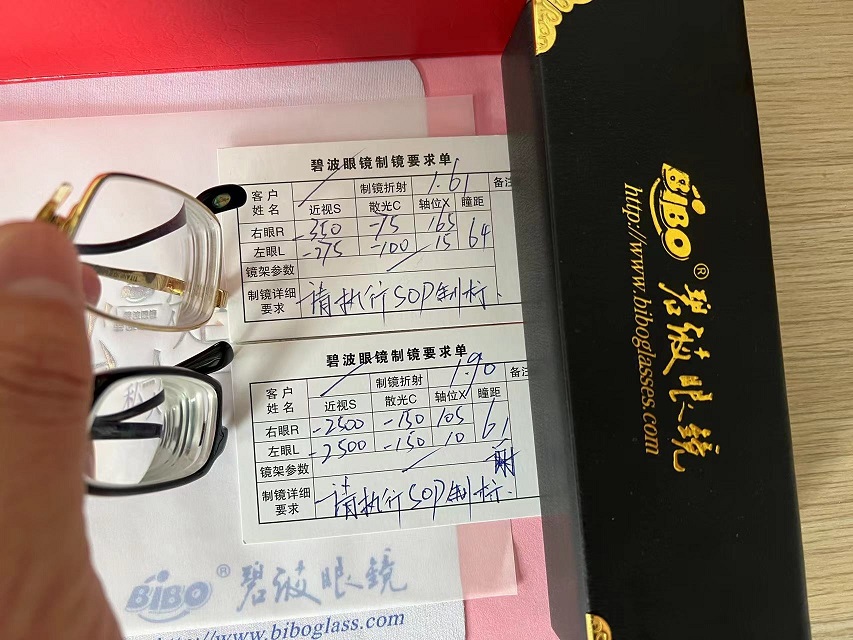 碧波眼镜制镜要求单
客户姓名 制镜折射 1.61 备注
近视S 散光C 轴位X 瞳距
右眼R -350 -75 165 64
左眼L -275 -100 15
镜架参数
制镜详细要求 请执行SOP制标.
碧波眼镜制镜要求单
客户姓名 制镜折射 1.90 备注
近视S 散光C 轴位X 瞳距
右眼R -2500 -150 105 61
左眼L -2500 -150 10
镜架参数
制镜详细要求 请执行SOP制标.
BIBO®碧波眼镜
http://www.biboglass.com
BIBO®碧波眼镜
http://www.biboglasses.com